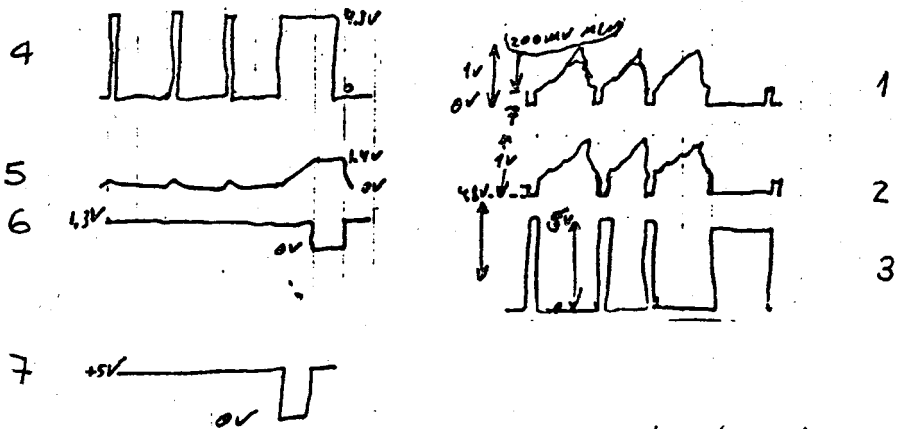 4
4.3V
0
5
1.4V
0V
6
1,3V
0V
7
+5V
0V
200mV
1V
0V
1
1V
2
5V
3